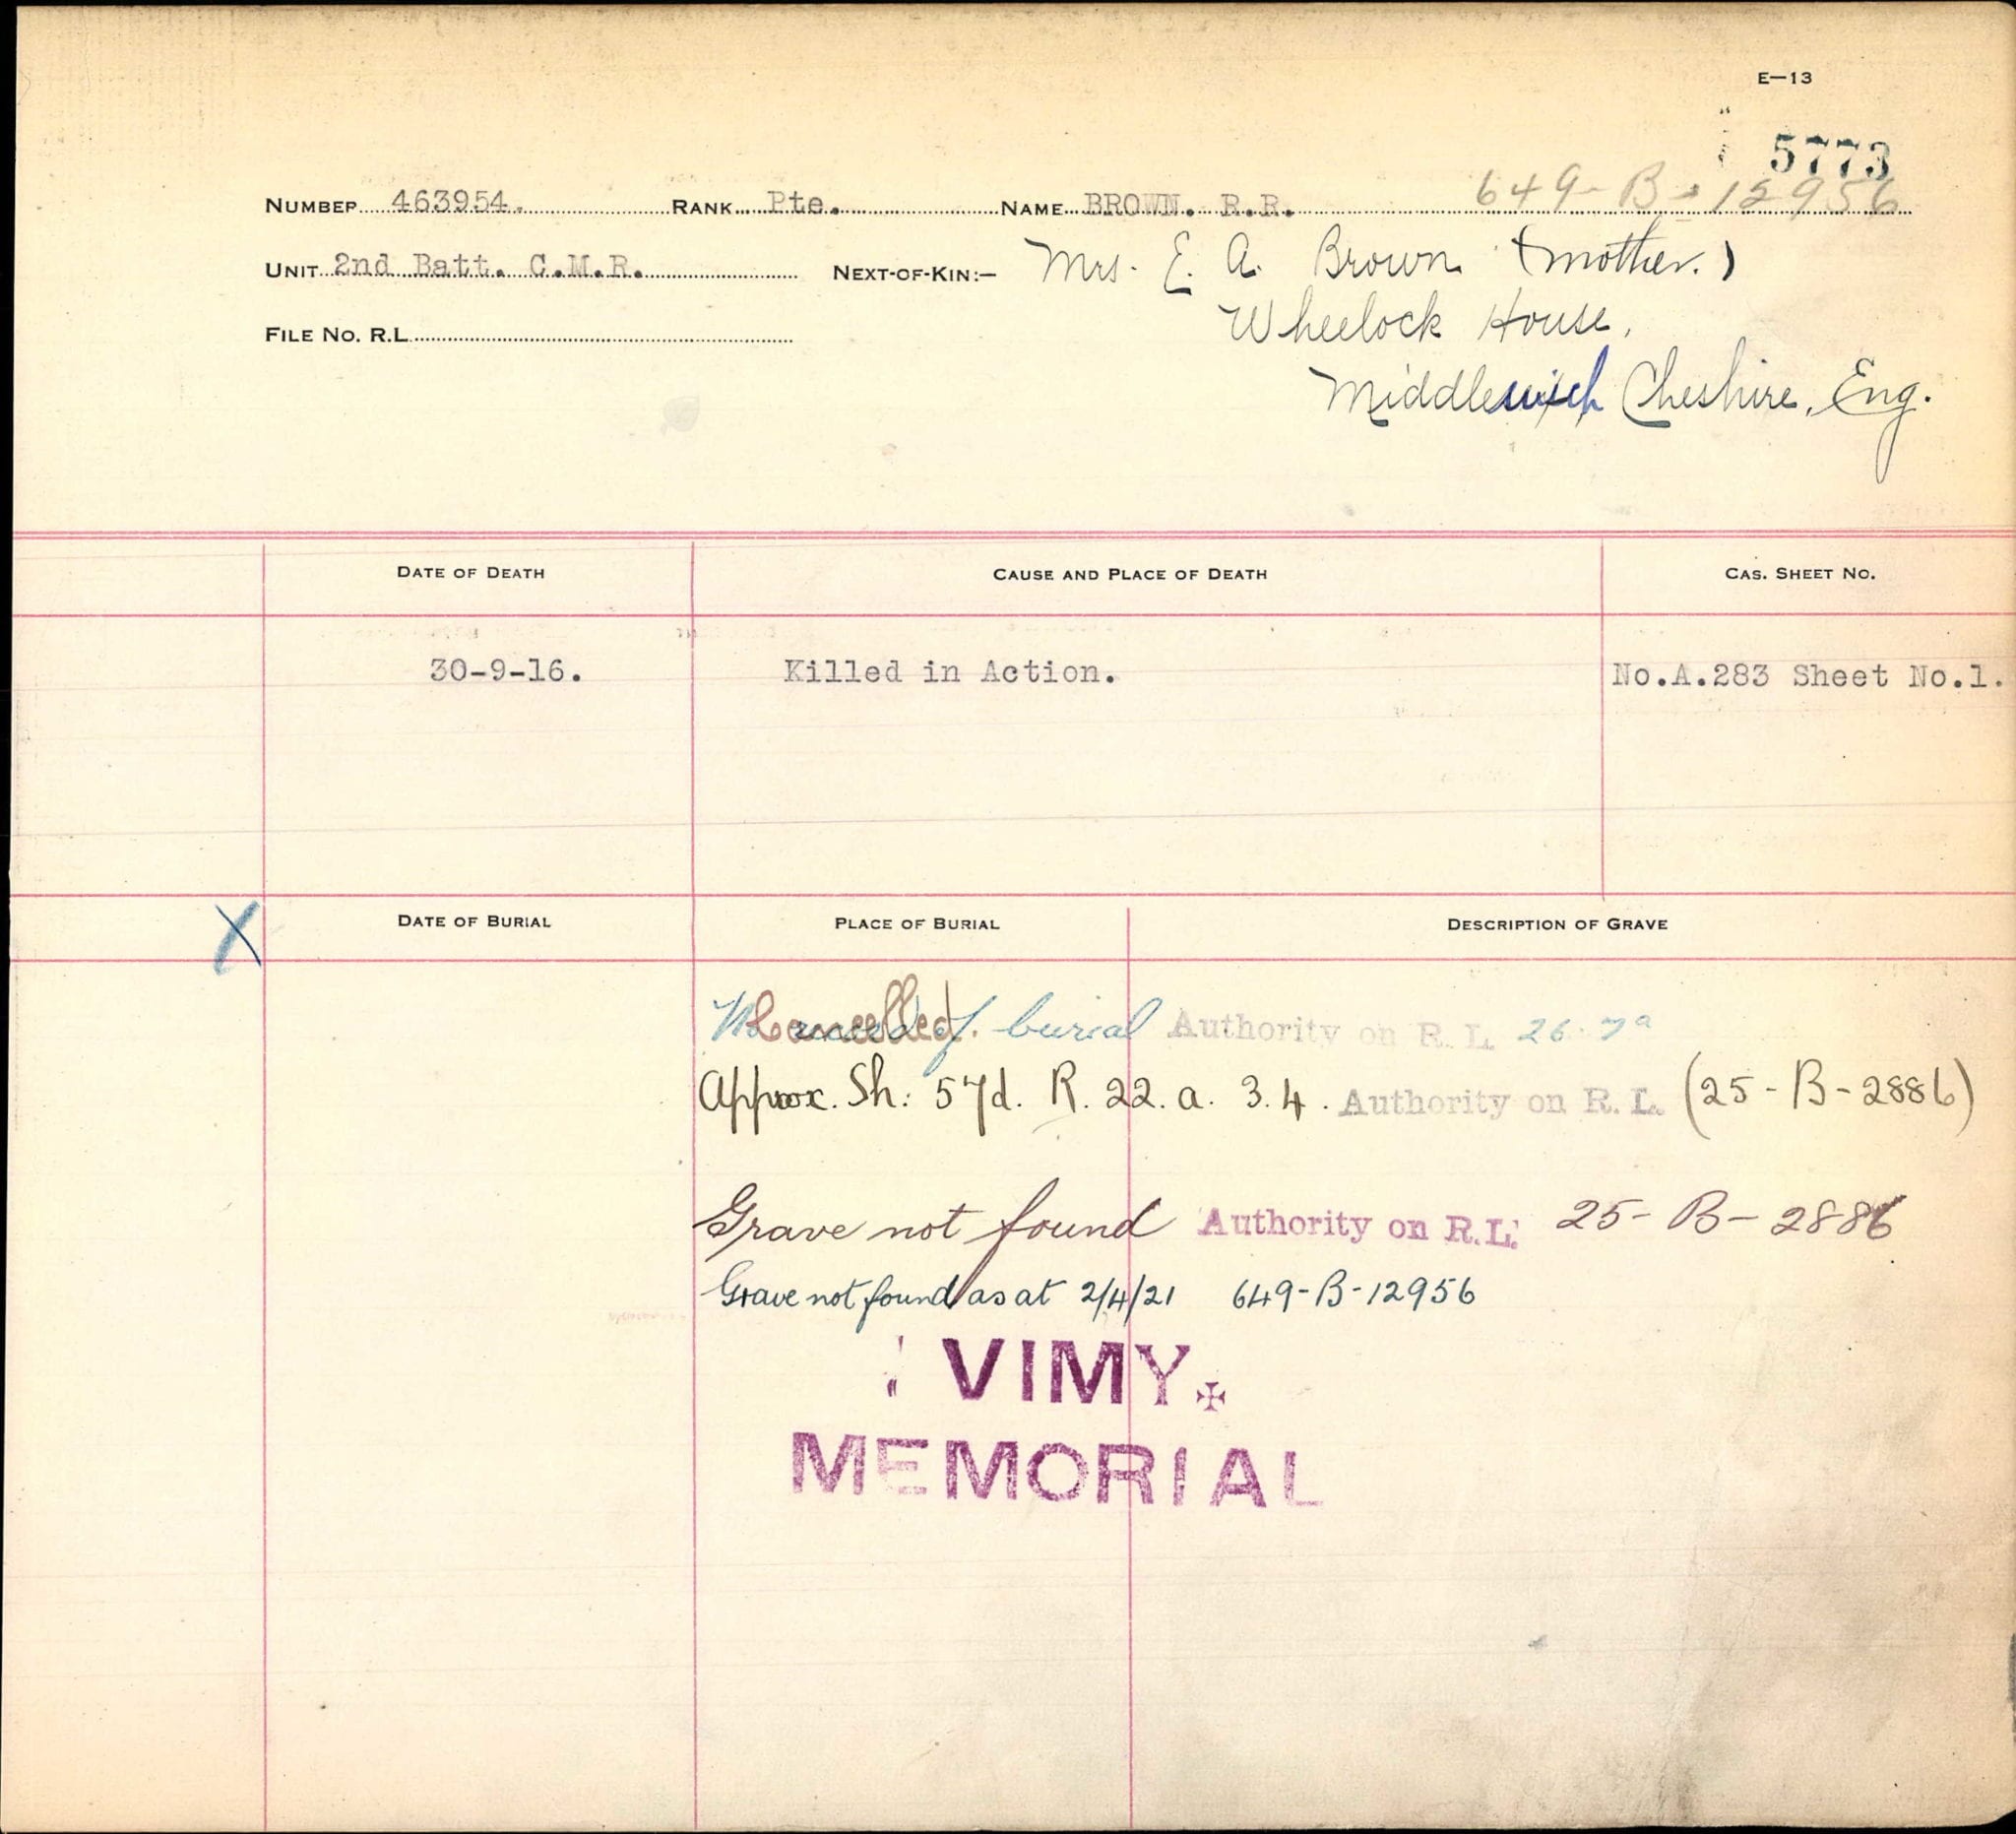 E—13
5773
649-B-12956
NUMBER 463954. RANK Pte. NAME BROWN. R.R.
UNIT 2nd Batt. C.M.R. NEXT-OF-KIN:— Mrs. E. A. Brown (mother.)
FILE NO. R.L. Wheelock House,
Middlewich Cheshire, Eng.
DATE OF DEATH CAUSE AND PLACE OF DEATH CAS. SHEET NO.
30-9-16. Killed in Action. No.A.283 Sheet No.1.
X DATE OF BURIAL PLACE OF BURIAL DESCRIPTION OF GRAVE
Cancelled. of burial Authority on R.L.
Approx. Sh: 57d. R. 22. a. 3.4. Authority on R.L. (25-B-2886)
Grave not found Authority on R.L. 25-B-2886
Grave not found as at 2/4/21 649-B-12956
VIMY
MEMORIAL